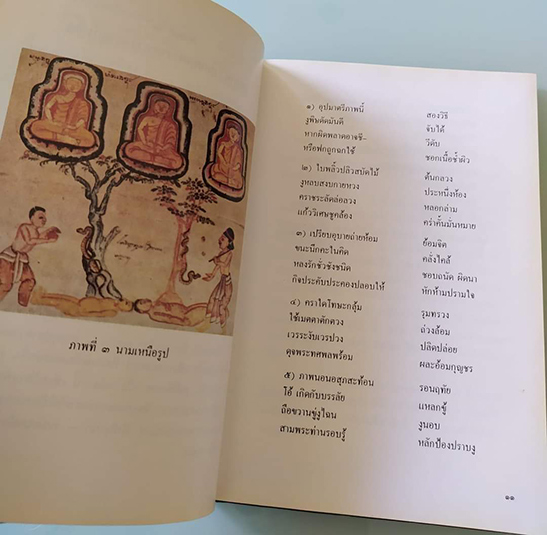 ภาพที่ ๓ นามเหนือรูป
๑) อุปมาศรีภาพนี้ สองวิธี
งูพิษตัดมันดี จับได้
หากผิดพลาดอาจชี- วีดับ
หรือฟกถูกฉกใช้ ชอกเนื้อช้ำผิว
๒) ใบพลิ้วปลิวสบัดไม้ ต้นกลวง
งูหลบสงบกายหวง ประหนึ่งห้อง
คราชระลัดล่อลวง หลอกล่าม
แก้ววิเศษชูคล้อง คร่ำคั้นมั่นหมาย
๓) เปรียบอุบายถ่ายห้อม ย้อมจิต
ขณะนึกคะในคิด คลั่งไคล้
หลงรักชั่วชังชนิด ชอบถนัด ผิดนา
กิจประคับประคองปลอบให้ หักห้ามปรามใจ
๔) คราใดโทษะกลุ้ม รุมทรวง
ใช้เมตตาตักตวง ถ่วงล้อม
เวรระงับเวรปวง ปลิดปล่อย
ดุจพระทศพลพร้อม ผละอ้อมกุญชร
๕) ภาพนอนอสุภสะท้อน รอนฤทัย
โอ้ เกิดกับบรรลัย แหลกชู้
ถือขวานขู่งูไฉน งูนอบ
สามพระท่านรอบรู้ หลักป้องปราบงู
๑๑